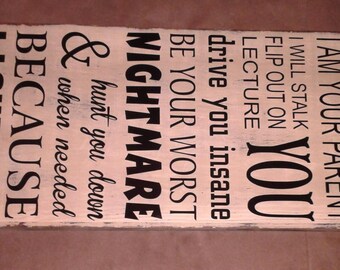 I AM YOUR PARENT
I WILL STALK
FLIP OUT ON
LECTURE
YOU
drive you insane
BE YOUR WORST
NIGHTMARE
& hunt you down
when needed
BECAUSE